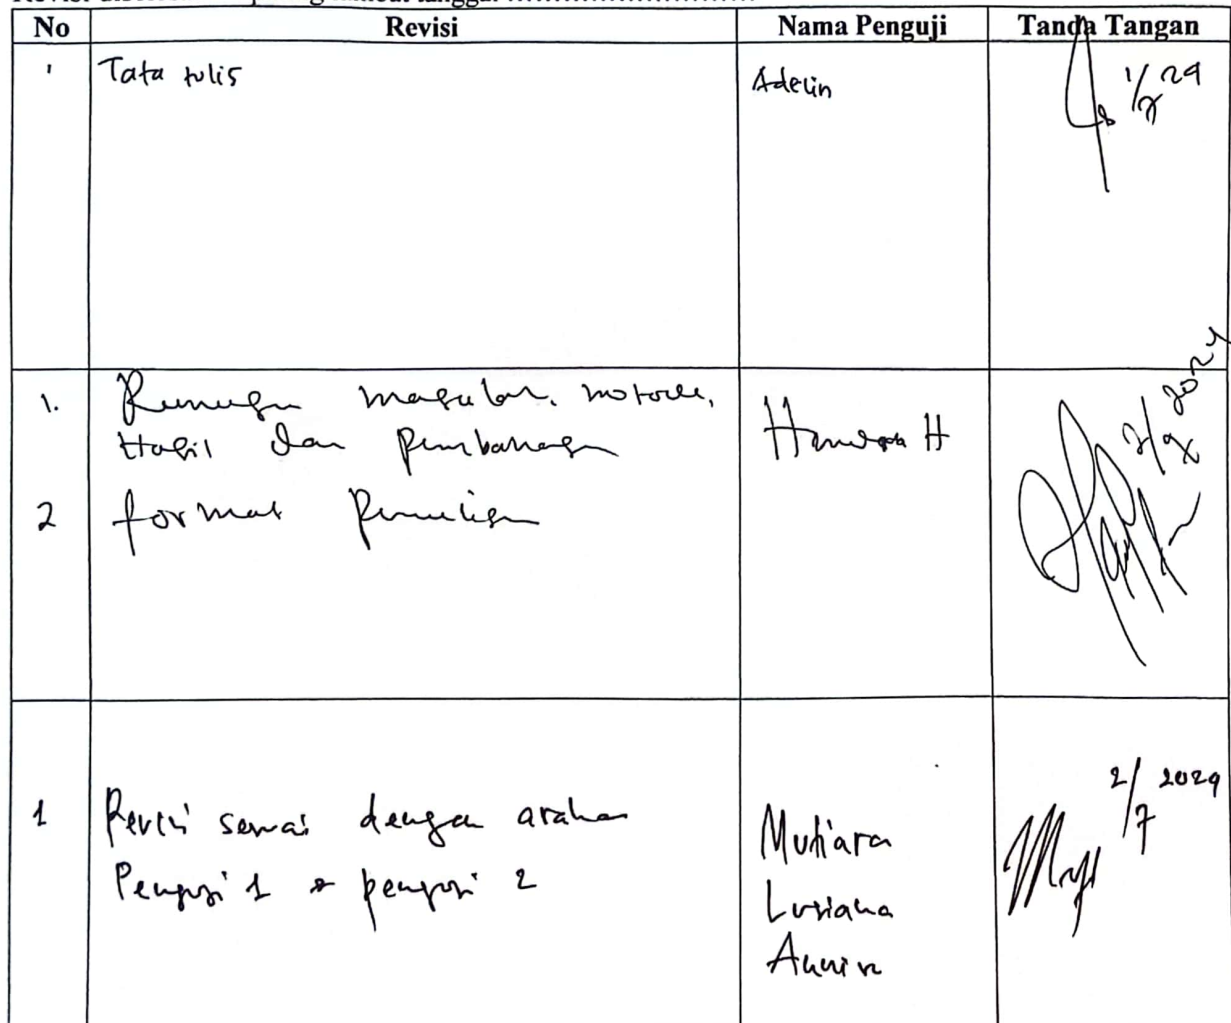 No Revisi Nama Penguji Tanda Tangan
1 Tata tulis Adelin 1/7 24
1. Rumusan masalah, metode,
Hasil dan Pembahasan H 2/7 2024
2 format Penulisan
1 Revisi sesuai dengan arahan 2/7 2024
Penguji 1 & penguji 2 Mutiara
Lusiana
Annisa